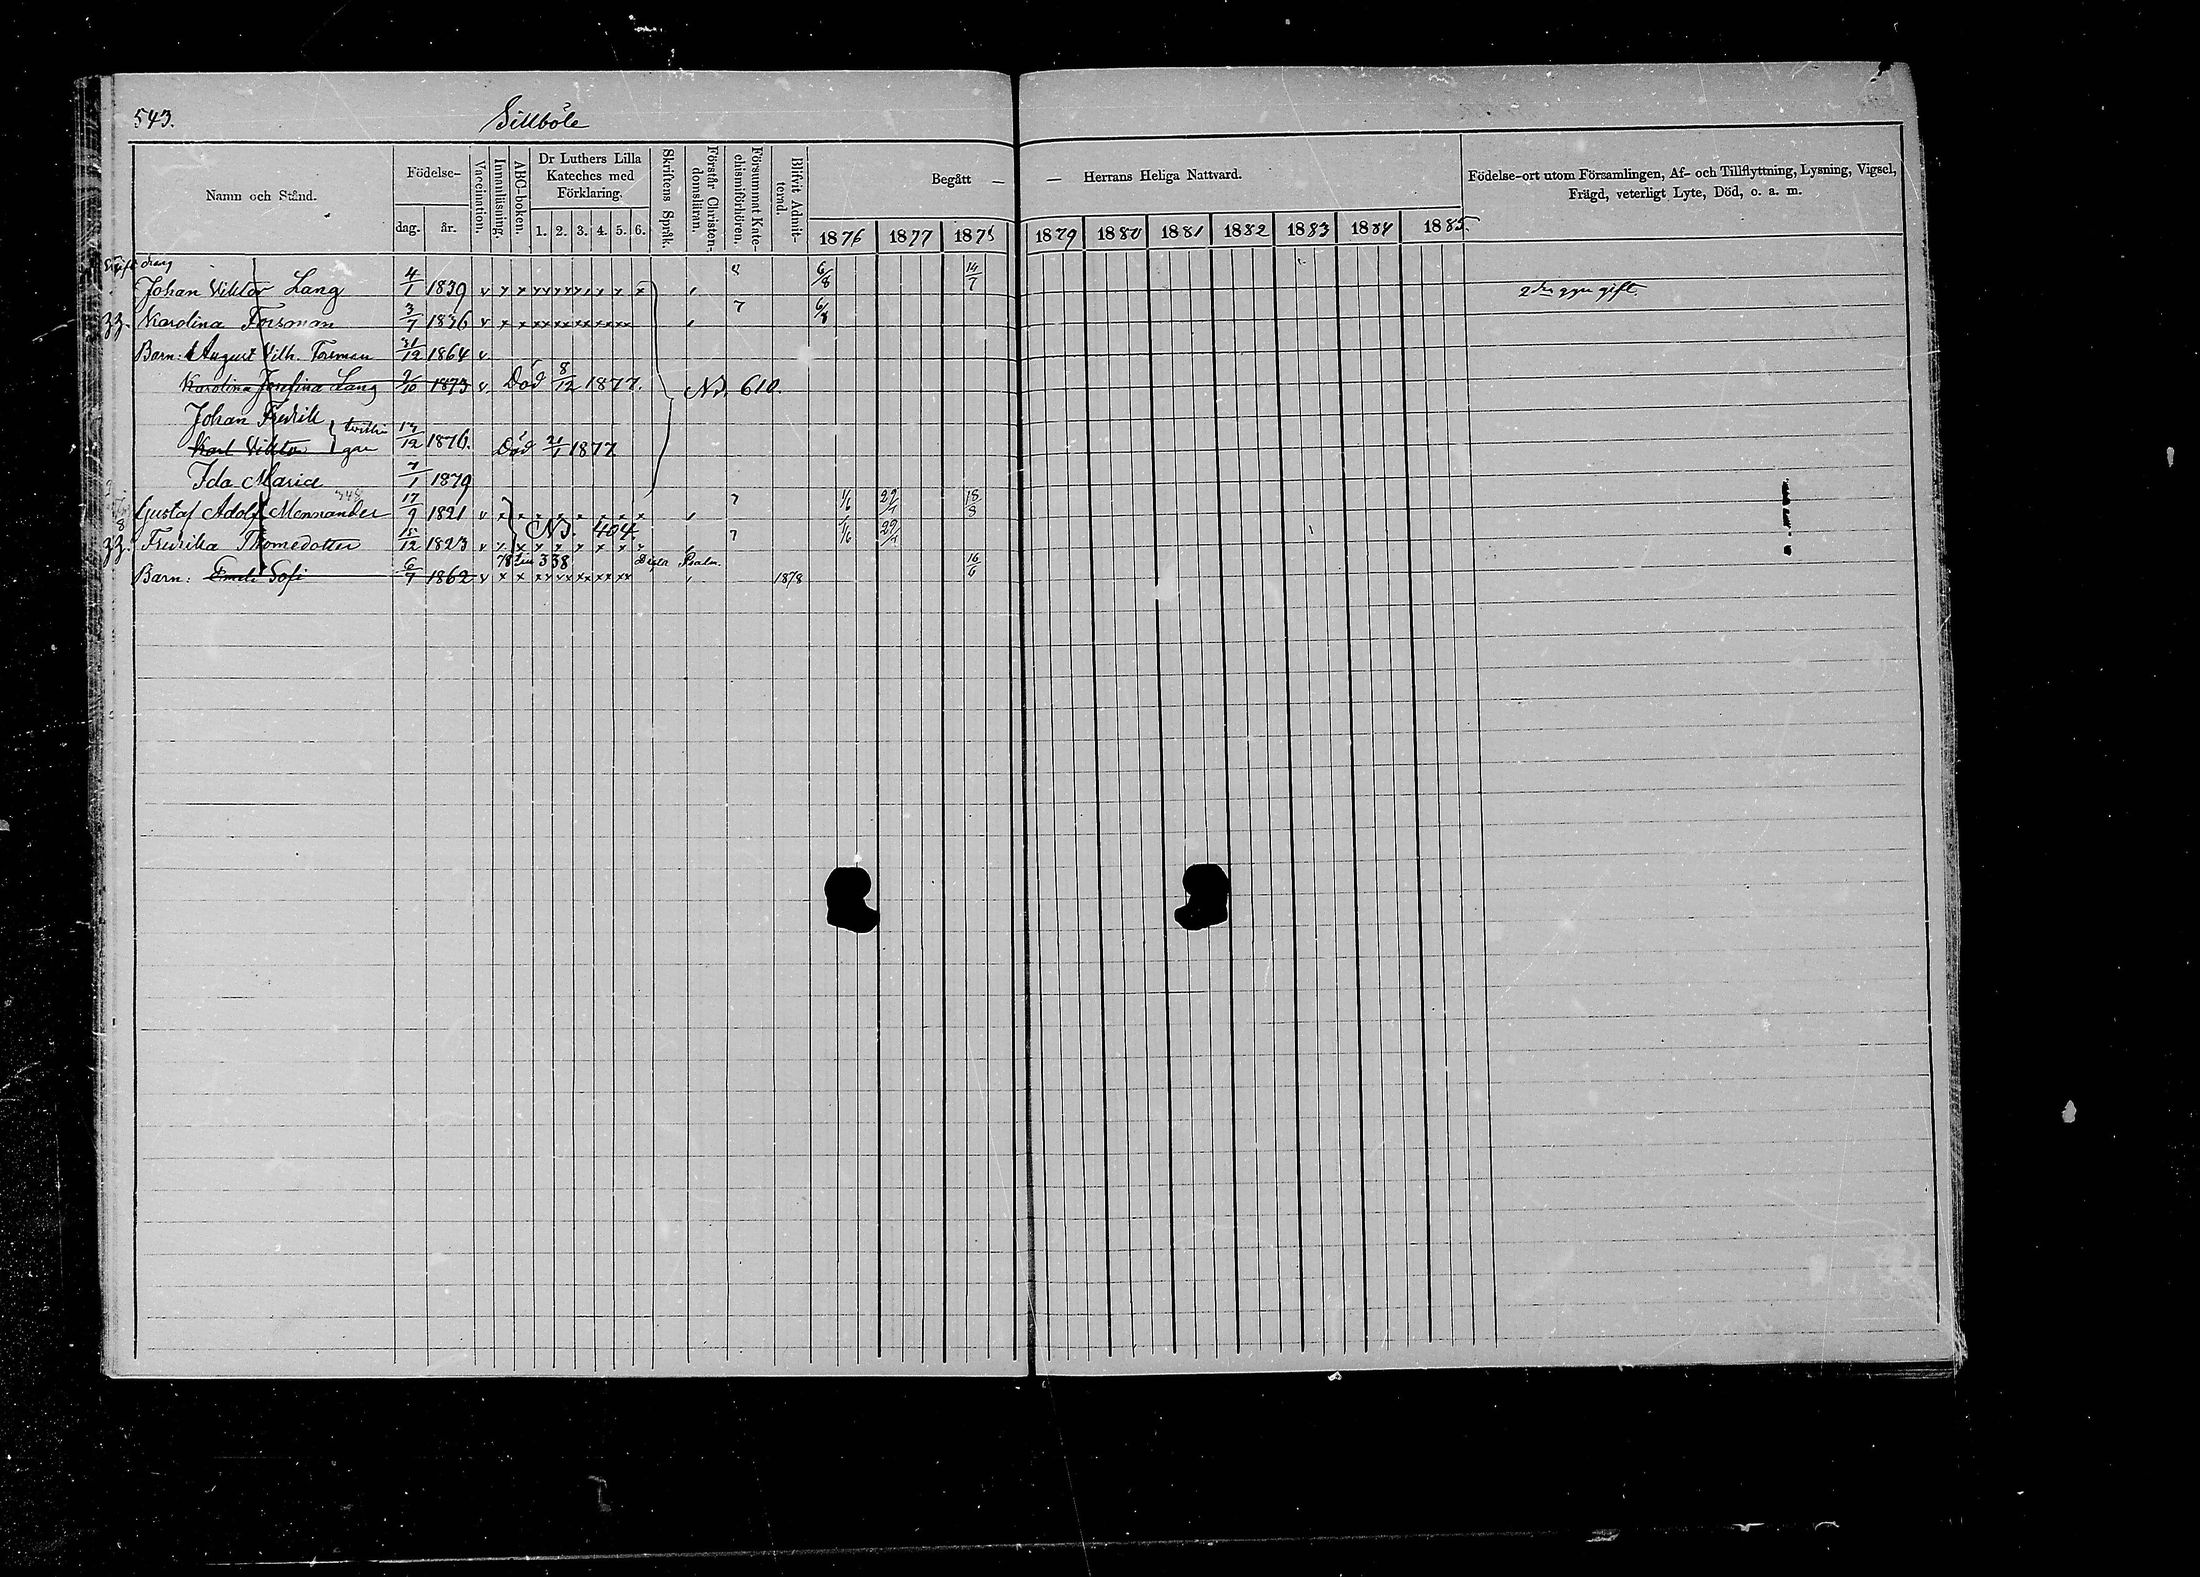 543.
Sillböle
Namn och Stånd.
Födelse-
dag.
år.
Vaccination.
Innanläsning.
ABC-boken.
Dr Luthers Lilla
Kateches med
Förklaring.
1. 2. 3. 4. 5. 6.
Skriftens Språk.
Förstår Christen-
domsläran.
Försummat Kate-
chismiförhören.
Blifvit Admit-
terad.
Begått — — Herrans Heliga Nattvard.
1876 1877 1878 1879 1880 1881 1882 1883 1884 1885.
Födelse-ort utom Församlingen, Af- och Tillflyttning, Lysning, Vigsel,
Frägd, veterligt Lyte, Död, o. a. m.
dräng
Johan Viktor Lang 4/1 1839 v x x x x x x x x x x 6/8 14/7 2dra ggn gift
Karolina Forsman 3/7 1836 v x x x x x x x x x x 7 6/8
Barn: August Vilh. Forsman 31/12 1864 v
Karolina Josefina Lang 2/10 1873 v. Död 8/12 1877. N:o 610.
Johan Fredrik
Karl Viktor } tvillin gar 17/12 1876. Död 21/1 1877
Ida Maria 7/1 1879
Gustaf Adolf Mennander 17/9 1821 v x x x x x x x 7 1/6 22/4 18/8
N:o 404.
Fredrika Thomedotter 15/12 1823 v x x x x x x x x 7 1/6 22/4
78 338 Psalm.
Barn: Emili Sofi 6/7 1862 v x x x x x x x x x x 1878 16/6